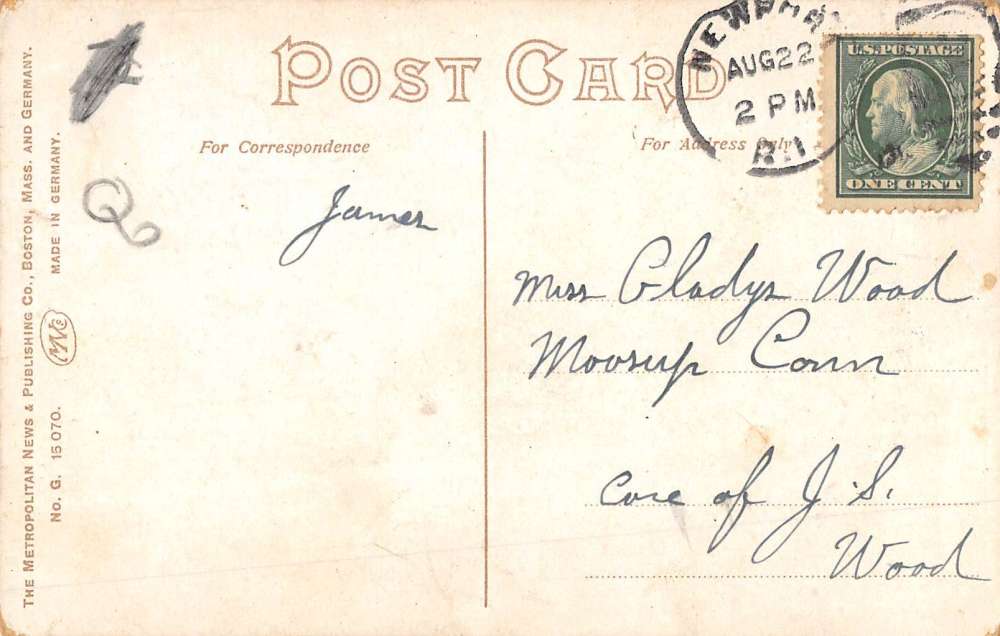 POST CARD
For Correspondence
For Address Only
NEWPORT
AUG 22
2 PM
R.I.
U.S. POSTAGE
ONE CENT
James
Miss Gladys Wood
Moosup Conn
Care of J. S.
Wood
THE METROPOLITAN NEWS & PUBLISHING CO., BOSTON, MASS. AND GERMANY.
MADE IN GERMANY.
No. G. 15 070.